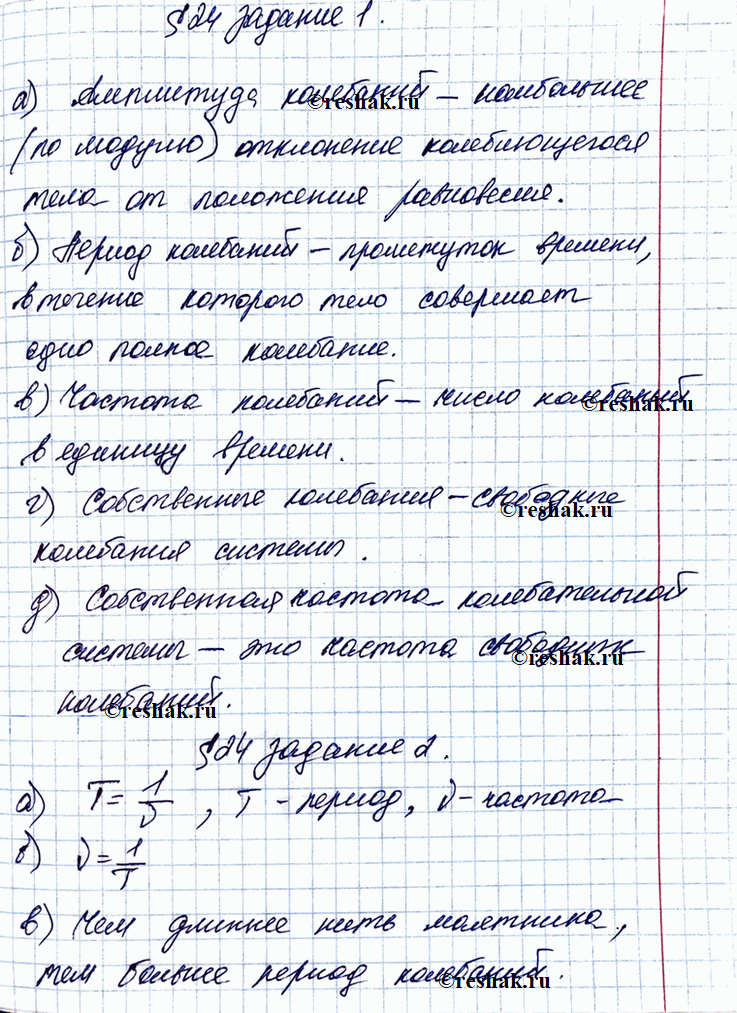 §24 задание 1.
а) Амплитуда колебаний – наибольшее
(по модулю) отклонение колеблющегося
тела от положения равновесия.
б) Период колебаний – промежуток времени,
в течение которого тело совершает
одно полное колебание.
в) Частота колебаний – число колебаний
в единицу времени.
г) Собственные колебания – свободные
колебания системы.
д) Собственная частота колебательной
системы – это частота свободных
колебаний.
§24 задание 2.
а) T = 1/ν, T – период, ν – частота
б) ν = 1/T
в) Чем длиннее нить маятника,
тем больше период колебаний.
©reshak.ru
©reshak.ru
©reshak.ru
©reshak.ru
©reshak.ru
©reshak.ru